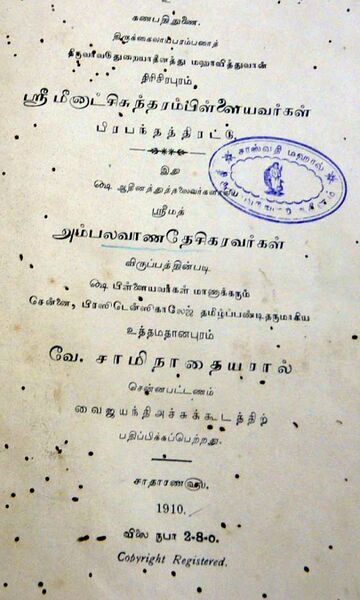 கணபதிதுணை.
திருக்கைலாயபரம்பரைத்
திருவாவடுதுறையாதீனத்து மஹாவித்துவான்
திரிசிரபுரம்
ஸ்ரீ மீனாட்சிசுந்தரம்பிள்ளையவர்கள்
பிரபந்தத்திரட்டு
இது
௸ ஆதீனத்துத்தலைவர்களாகிய
ஸ்ரீமத்
அம்பலவாணதேசிகரவர்கள்
விருப்பத்தின்படி
௸ பிள்ளையவர்கள் மாணாக்கரும்
சென்னை, பிரஸிடென்ஸிகாலேஜ் தமிழ்ப்பண்டிதருமாகிய
உத்தமதானபுரம்
வே. சாமிநாதையரால்
சென்னபட்டணம்
வைஜயந்தி அச்சுக்கூடத்திற்
பதிப்பிக்கப்பெற்றது.
சாதாரண௵.
1910.
விலை ரூபா 2-8-0.
Copyright Registered.
சரஸ்வதி மஹால்